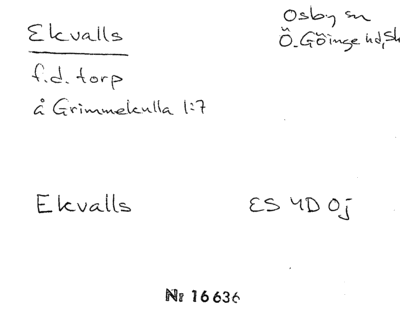 Ekvalls
Osby sn
Ö. Göinge hd, Sk
f.d. torp
å Grimmekulla 1:7
Ekvalls
ES 4D 0j
Nr 16636